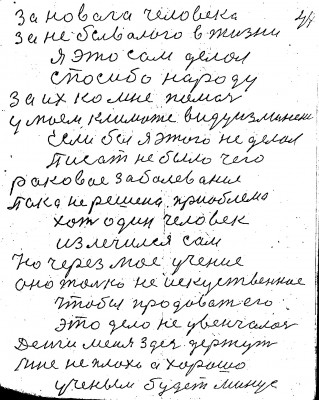 44
За новага человека
за не бывалого в жизни
я это сам делал
спосибо народу
за их ко мне помач
у моем климате виду изменен
если бы я этого не делал
писат не было чего
раковое заболевание
пака не решена приоблема
хот один человек
излечился сам
но через мое учение
оно толко не искуственное
чтобы продоват его
это дело не увенчалос
Дети меня здес держут
мне не плохо а хорошо
ученым будет минус